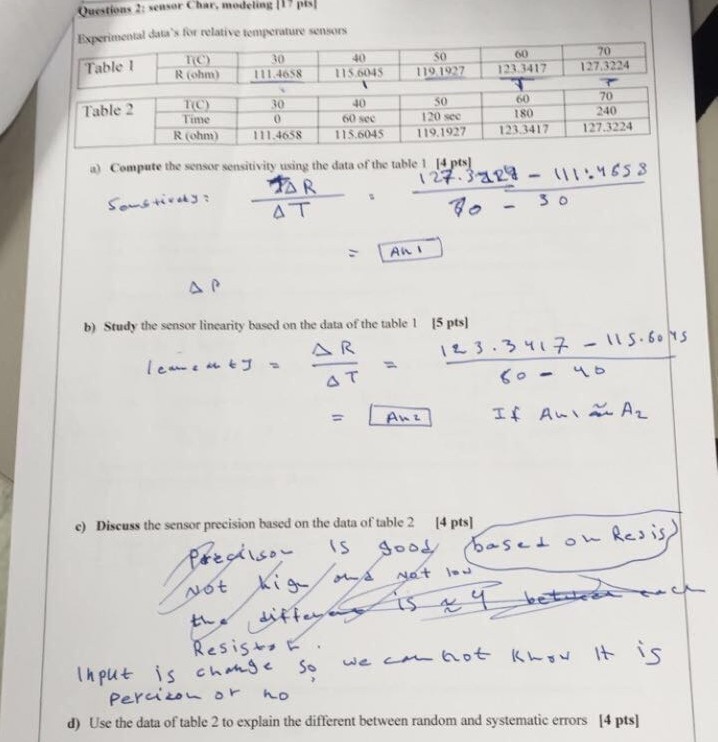 Questions 2: sensor Char, modeling [17 pts]
Experimental data's for relative temperature sensors
Table 1 T(C) 30 40 50 60 70
R (ohm) 111.4658 115.6045 119.1927 123.3417 127.3224
Table 2 T(C) 30 40 50 60 70
Time 0 60 sec 120 sec 180 240
R (ohm) 111.4658 115.6045 119.1927 123.3417 127.3224
a) Compute the sensor sensitivity using the data of the table 1 [4 pts]
ΔR 127.3224 - 111.4658
ΔT 30
= An 1
ΔP
b) Study the sensor linearity based on the data of the table 1 [5 pts]
= ΔR = 123.3417 - 115.6045
ΔT 60 - 40
= An 2 If An1 ≈ A2
c) Discuss the sensor precision based on the data of table 2 [4 pts]
is good based on Resis
Not high and Not low
the is ≈ 4 between each
Input is change so we can not know it is
or no
d) Use the data of table 2 to explain the different between random and systematic errors [4 pts]